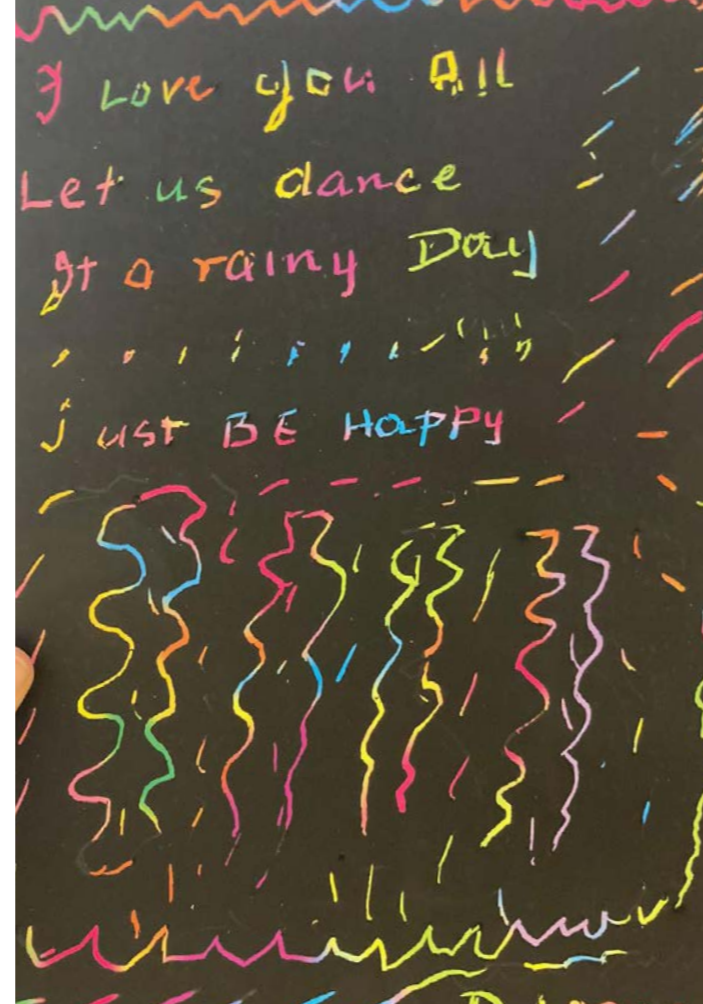 I Love you All
Let us dance
At a rainy Day
just BE HAPPY